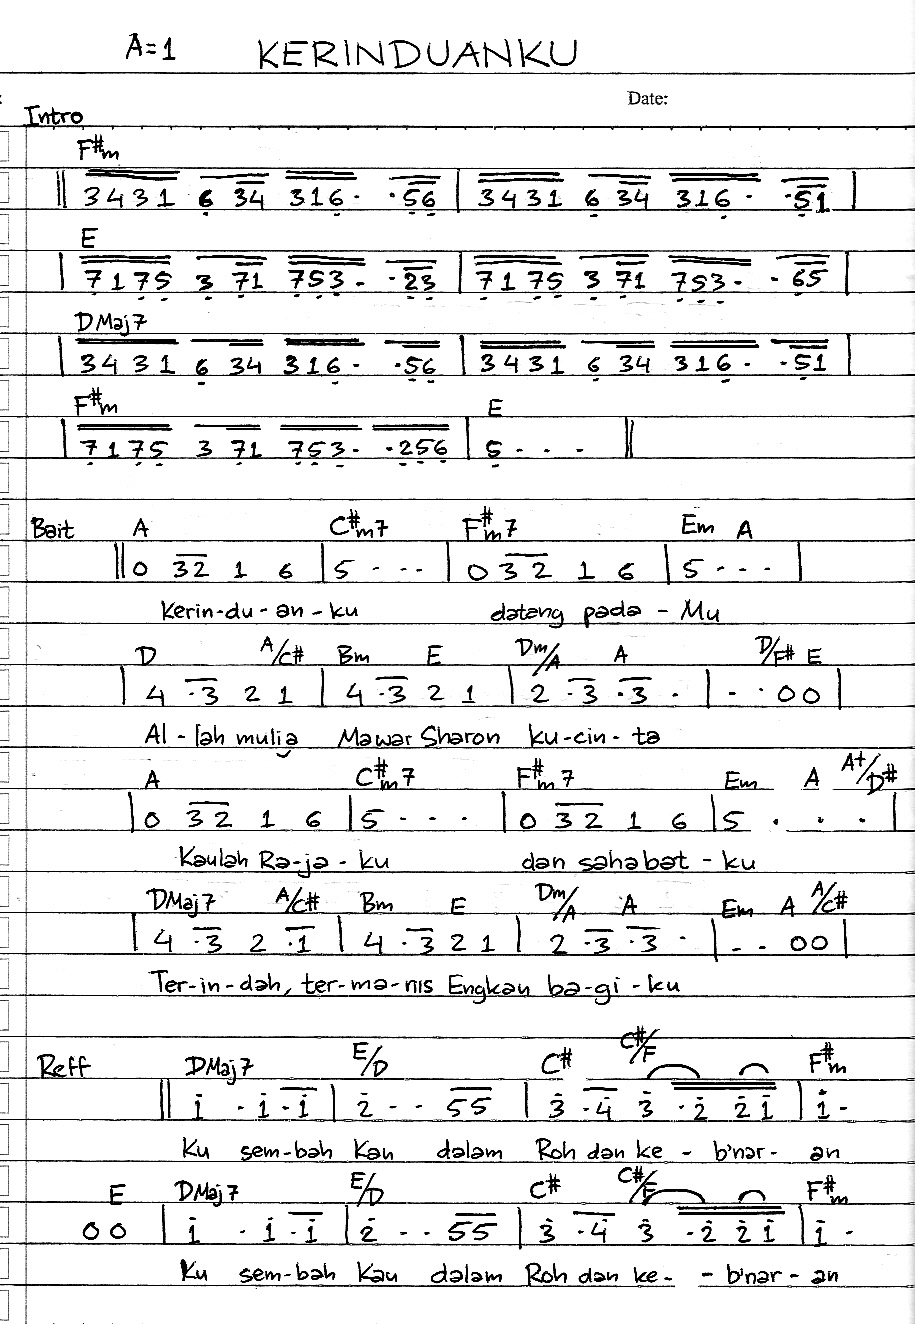 A=1 KERINDUANKU
Date:
Intro
F#m
|| 3431 6 34 316. .56 | 3431 6 34 316. .51 |
E
| 7175 3 71 753. .23 | 7175 3 71 753. .65 |
DMaj7
| 3431 6 34 316. .56 | 3431 6 34 316. .51 |
F#m E
| 7175 3 71 753. .256 | 5 . . . ||
Bait A C#m7 F#m7 Em A
|| 0 32 1 6 | 5 . . . | 0 32 1 6 | 5 . . . |
Kerin-du-an-ku datang pada-Mu
D A/C# Bm E Dm/A A D/F# E
| 4 .3 2 1 | 4 .3 2 1 | 2 .3 .3 . | . . 0 0 |
Al-lah mulia Mawar Sharon ku-cin-ta
A C#m7 F#m7 Em A A+/D#
| 0 32 1 6 | 5 . . . | 0 32 1 6 | 5 . . . |
Kaulah Ra-ja-ku dan sahabat-ku
DMaj7 A/C# Bm E Dm/A A Em A A/C#
| 4 .3 2 .1 | 4 .3 2 1 | 2 .3 .3 . | . . 0 0 |
Ter-in-dah, ter-ma-nis Engkau ba-gi-ku
Reff DMaj7 E/D C# C#/F F#m
|| 1 . 1 .1 | 2 . . 55 | 3 .4 3 .2 21 | 1 .
Ku sem-bah Kau dalam Roh dan ke-b'nar-an
E DMaj7 E/D C# C#/F F#m
0 0 | 1 . 1 .1 | 2 . . 55 | 3 .4 3 .2 21 | 1 .
Ku sem-bah Kau dalam Roh dan ke--b'nar-an